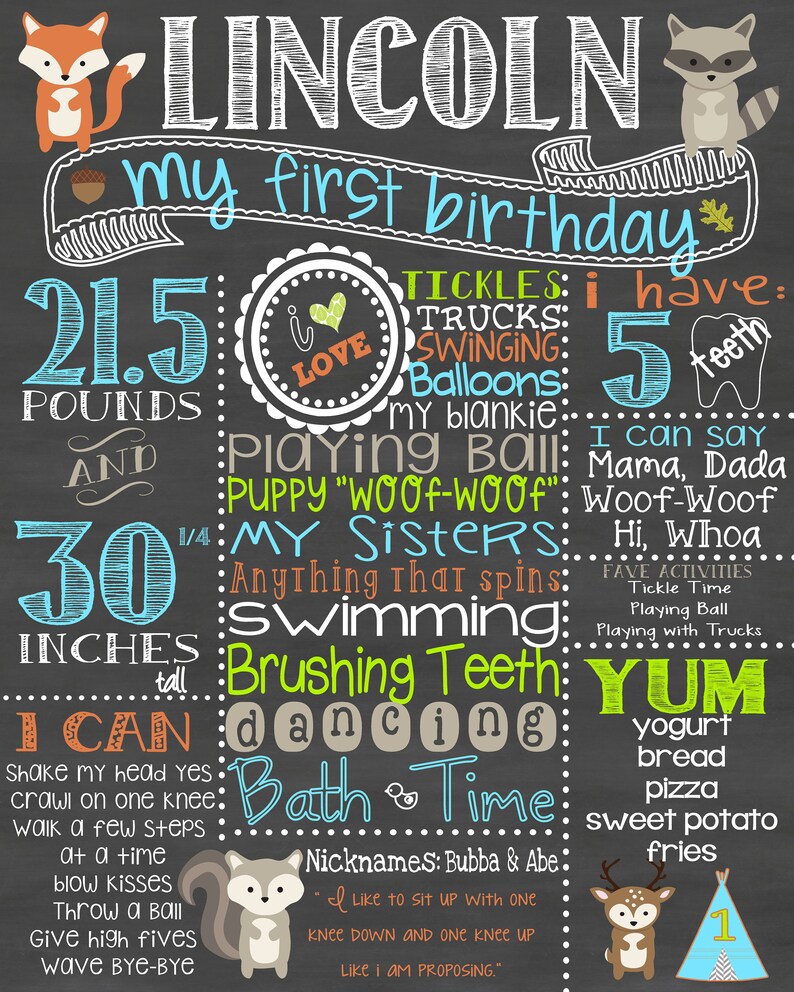 LINCOLN
my first birthday
21.5
POUNDS
AND
30 1/4
INCHES
tall
I CAN
Shake my head yes
Crawl on one knee
Walk a few steps
at a time
Blow kisses
Throw a ball
Give high fives
Wave bye-bye
i
LOVE
TICKLES
TRUCKS
SWINGING
Balloons
my blankie
Playing Ball
PUPPY "WOOf-WOOf"
My Sisters
Anything that spins
swimming
Brushing Teeth
dancing
Bath Time
Nicknames: Bubba & Abe
" I like to sit up with one
knee down and one knee up
like i am proposing."
i have:
5 teeth
I can say
Mama, Dada
Woof-Woof
Hi, Whoa
FAVE ACTIVITIES
Tickle Time
Playing Ball
Playing with Trucks
YUM
yogurt
bread
pizza
sweet potato
fries
1